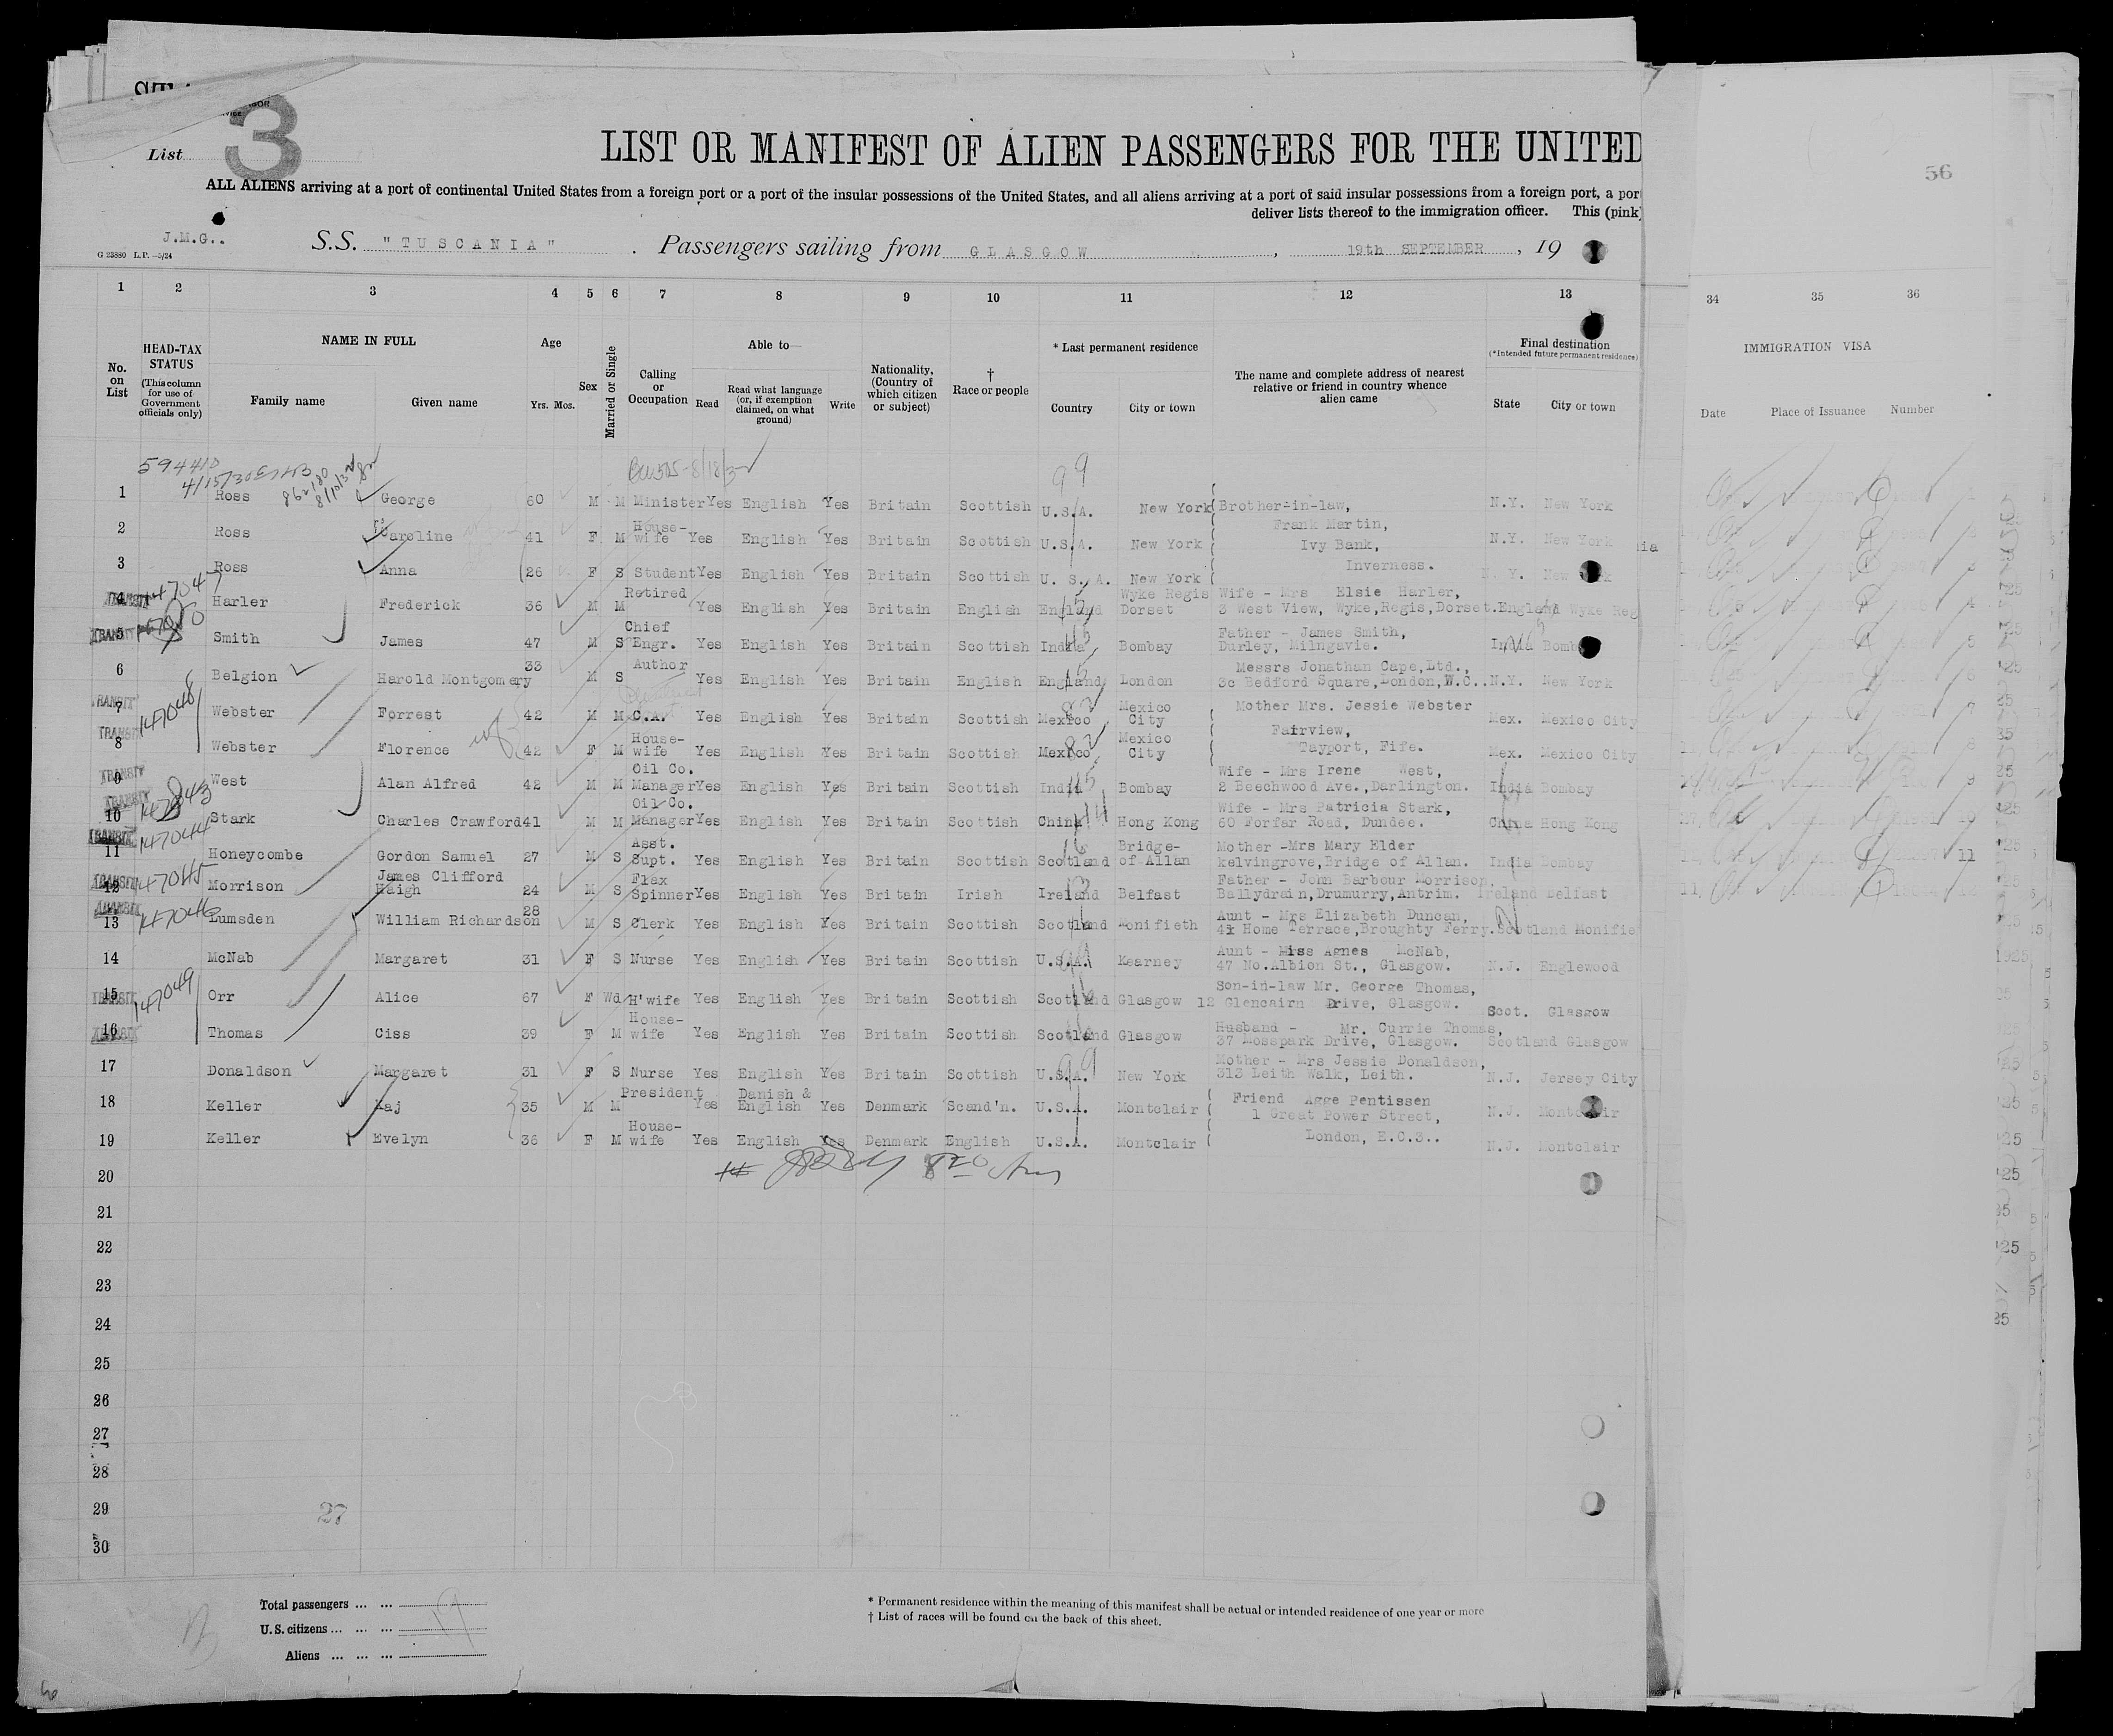 List 3
56
LIST OR MANIFEST OF ALIEN PASSENGERS FOR THE UNITED
ALL ALIENS arriving at a port of continental United States from a foreign port or a port of the insular possessions of the United States, and all aliens arriving at a port of said insular possessions from a foreign port, a por
deliver lists thereof to the immigration officer. This (pink)
J.M.G..
G 23880 L.P.—5/24
S.S. "TUSCANIA" . Passengers sailing from GLASGOW , 19th SEPTEMBER , 19
1 2 3 4 5 6 7 8 9 10 11 12 13 34 35 36
No. on List
HEAD-TAX STATUS
(This column for use of Government officials only)
NAME IN FULL
Family name Given name
Age
Yrs. Mos.
Sex
Married or Single
Calling or Occupation
Able to—
Read
Read what language (or, if exemption claimed, on what ground)
Write
Nationality, (Country of which citizen or subject)
† Race or people
* Last permanent residence
Country City or town
The name and complete address of nearest relative or friend in country whence alien came
Final destination
(*Intended future permanent residence)
State City or town
IMMIGRATION VISA
Date Place of Issuance Number
1 Ross George 60 M M Minister Yes English Yes Britain Scottish U.S.A. New York Brother-in-law, N.Y. New York
2 Ross Caroline 41 F M House-wife Yes English Yes Britain Scottish U.S.A. New York Frank Martin, Ivy Bank, N.Y. New York
3 Ross Anna 26 F S Student Yes English Yes Britain Scottish U.S.A. New York Inverness. N.Y. New
TRANSIT 147047
4 Harler Frederick 36 M M Retired Yes English Yes Britain English England Wyke Regis Dorset Wife - Mrs Elsie Harler, 3 West View, Wyke,Regis,Dorset. England Wyke Reg
TRANSIT
5 Smith James 47 M S Chief Engr. Yes English Yes Britain Scottish India Bombay Father - James Smith, Durley, Milngavie. India Bomb
6 Belgion Harold Montgomery 33 M S Author Yes English Yes Britain English England London Messrs Jonathan Cape,Ltd., 3c Bedford Square,London,W.C.. N.Y. New York
TRANSIT 147048
7 Webster Forrest 42 M M C.A. Yes English Yes Britain Scottish Mexico Mexico City Mother Mrs. Jessie Webster Mex. Mexico City
TRANSIT
8 Webster Florence 42 F M House-wife Yes English Yes Britain Scottish Mexico Mexico City Fairview, Tayport, Fife. Mex. Mexico City
TRANSIT
9 West Alan Alfred 42 M M Oil Co. Manager Yes English Yes Britain Scottish India Bombay Wife - Mrs Irene West, 2 Beechwood Ave.,Darlington. India Bombay
TRANSIT 147043
10 Stark Charles Crawford 41 M M Oil Co. Manager Yes English Yes Britain Scottish China Hong Kong Wife - Mrs Patricia Stark, 60 Forfar Road, Dundee. China Hong Kong
TRANSIT 147044
11 Honeycombe Gordon Samuel 27 M S Asst. Supt. Yes English Yes Britain Scottish Scotland Bridge-of Allan Mother -Mrs Mary Elder kelvingrove,Bridge of Allan. India Bombay
TRANSIT 147045
12 Morrison James Clifford Haigh 24 M S Flax Spinner Yes English Yes Britain Irish Ireland Belfast Father - John Barbour Morrison, Ballydrain,Drumurry,Antrim. Ireland Belfast
TRANSIT 147046
13 Lumsden William Richardson 28 M S Clerk Yes English Yes Britain Scottish Scotland Monifieth Aunt - Mrs Elizabeth Duncan, 41 Home Terrace,Broughty Ferry. Scotland Monifie
14 McNab Margaret 31 F S Nurse Yes English Yes Britain Scottish U.S.A. Kearney Aunt - Miss Agnes McNab, 47 No.Albion St., Glasgow. N.J. Englewood
TRANSIT 147049
15 Orr Alice 67 F Wd H'wife Yes English Yes Britain Scottish Scotland Glasgow Son-in-law Mr. George Thomas, 12 Glencairn Drive, Glasgow. Scot. Glasgow
TRANSIT
16 Thomas Ciss 39 F M House-wife Yes English Yes Britain Scottish Scotland Glasgow Husband - Mr. Currie Thomas, 37 Mosspark Drive, Glasgow. Scotland Glasgow
17 Donaldson Margaret 31 F S Nurse Yes English Yes Britain Scottish U.S.A. New York Mother - Mrs Jessie Donaldson, 313 Leith Walk, Leith. N.J. Jersey City
18 Keller Kaj 35 M M President Yes Danish & English Yes Denmark Scand'n. U.S.A. Montclair Friend Agge Pentissen 1 Great Power Street, N.J. Montclair
19 Keller Evelyn 36 F M House-wife Yes English Yes Denmark English U.S.A. Montclair London, E.C.3.. N.J. Montclair
20
21
22
23
24
25
26
27
28
29
27
30
Total passengers ... ... 19
U.S. citizens ... ... ...
Aliens ... ... ...
* Permanent residence within the meaning of this manifest shall be actual or intended residence of one year or more
† List of races will be found on the back of this sheet.